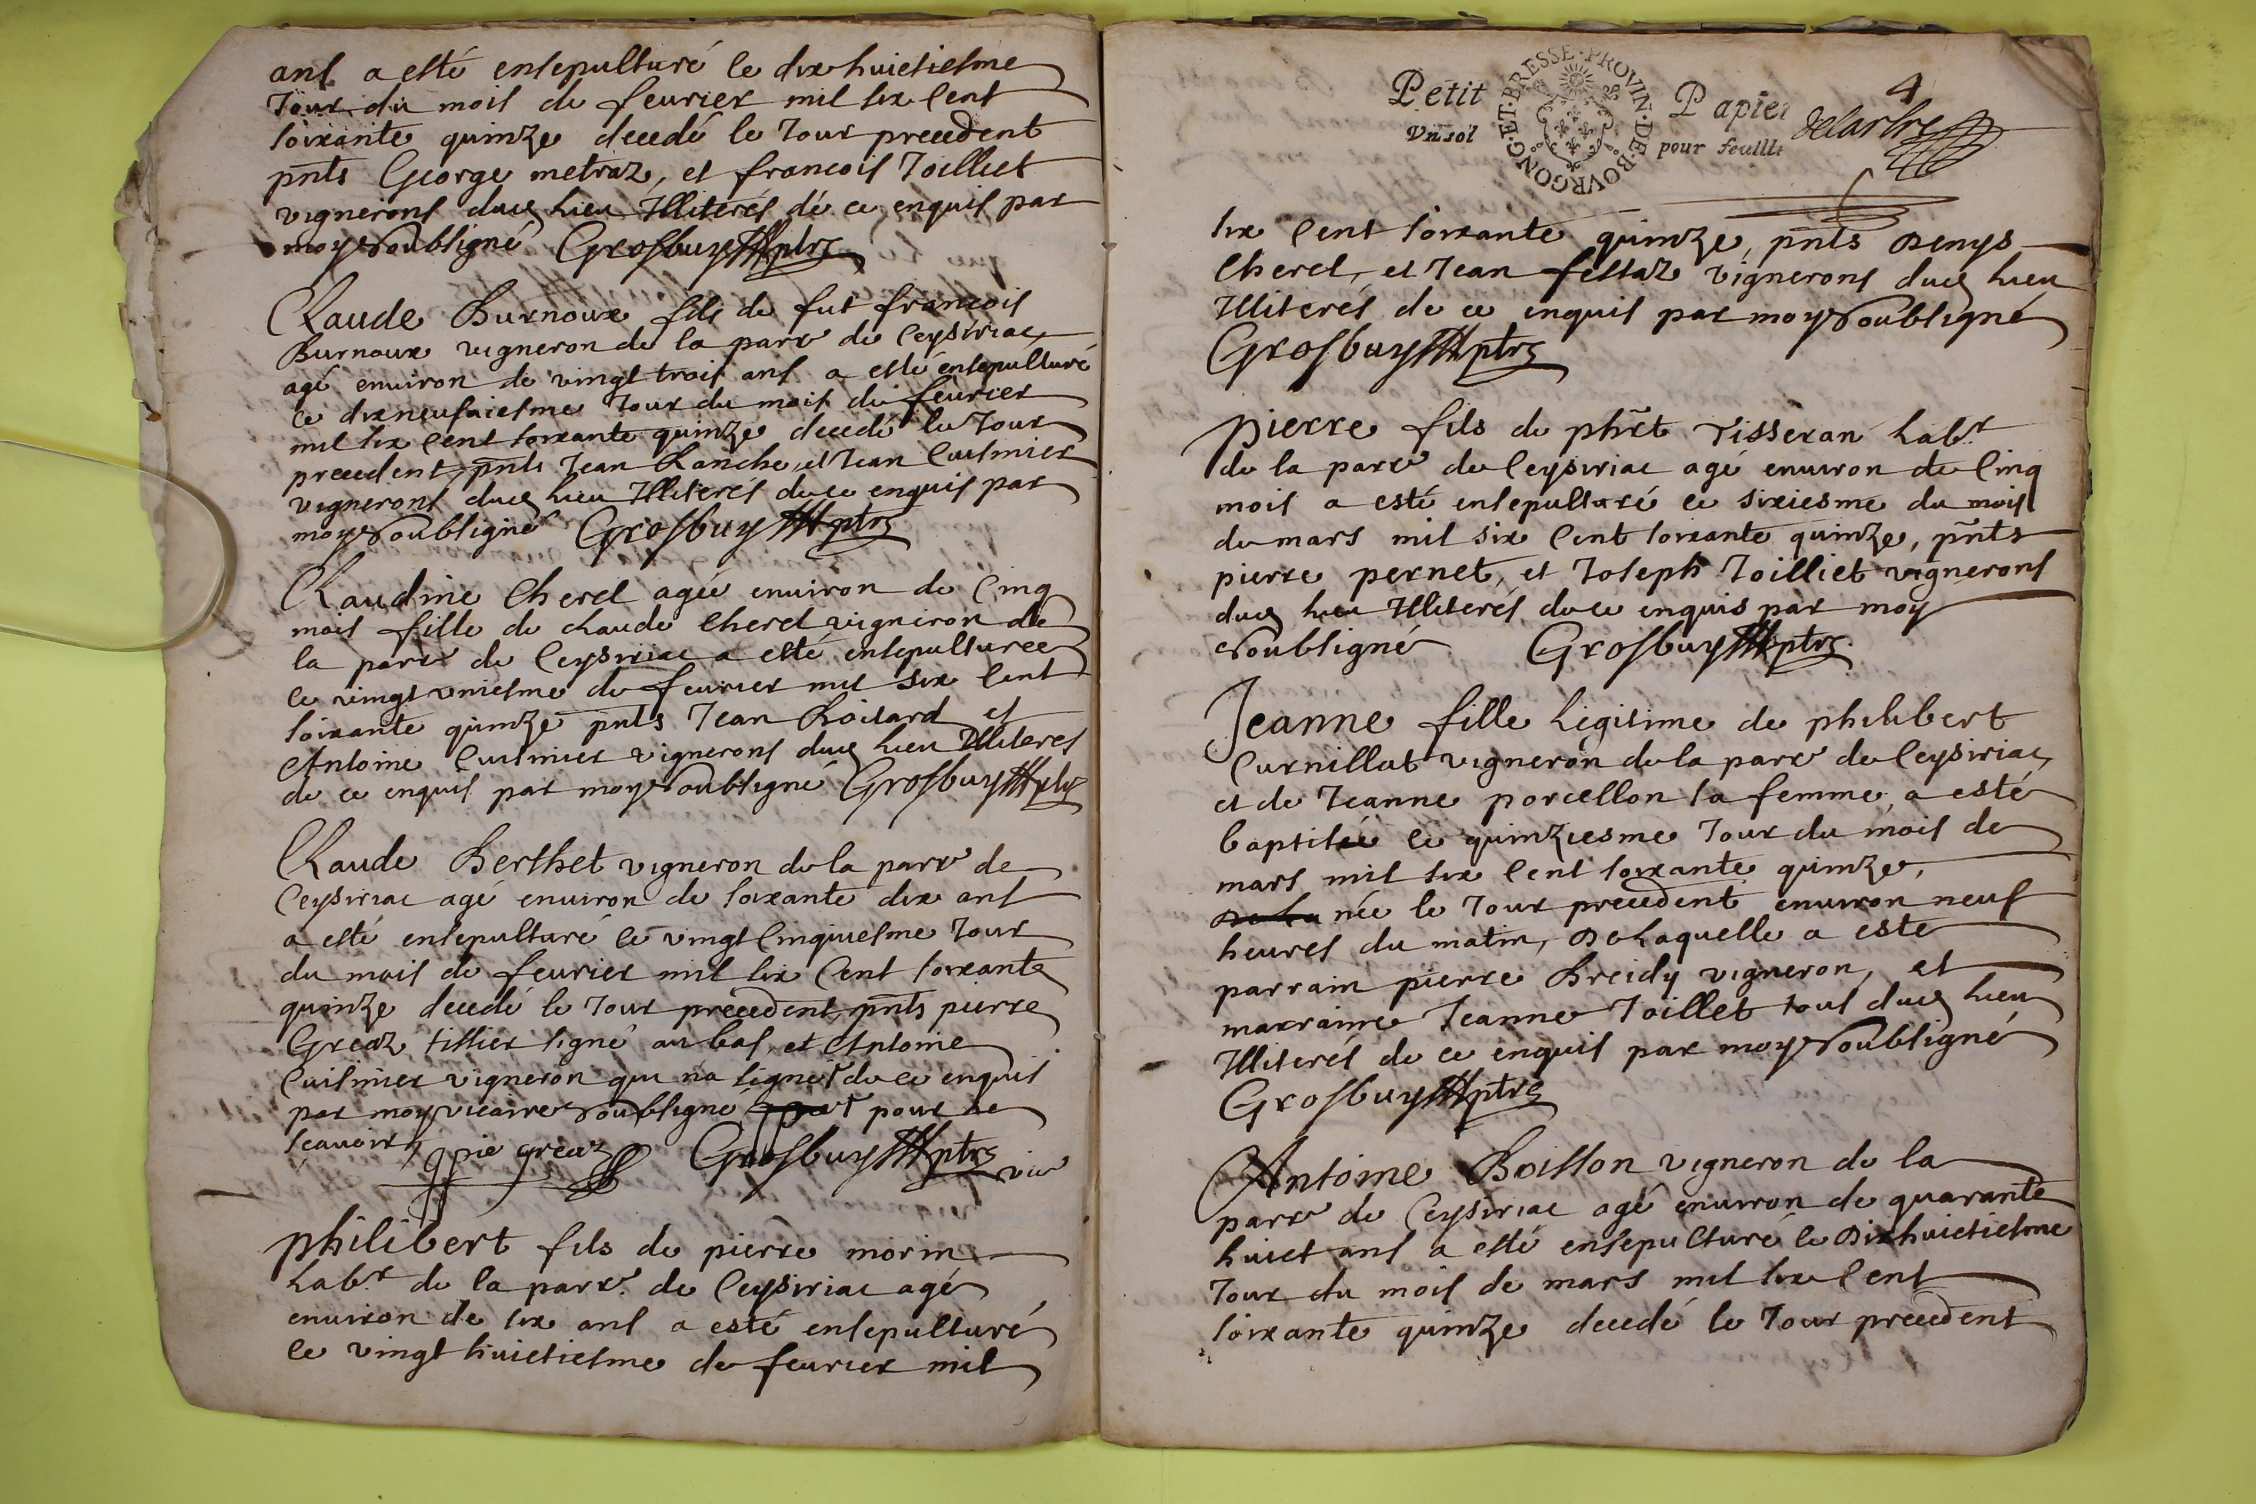 ans a esté ensepulturé le dix huictiesme
Jour du mois de feurier mil six Cent
soixante quinze decedé le Jour precedent
pnts George metraz, et francois Joilliet
vignerons dud lieu Illiterés de ce enquis par
moy soubsigné Grosbuy ptre
Claude Burnoux fils de fut francois
Burnoux vigneron de la parr de Ceysiriac
agé enuiron de vingt trois ans a esté ensepulturé
le dixneufuiesme Jour du mois de feurier
mil six Cent soixante quinze decedé le Jour
precedent, pnts Jean et Jean Cuisinier
vignerons dud lieu Illiterés de ce enquis par
moy soubsigné Grosbuy ptre
Claudine Cherel agée enuiron de Cinq
mois fille de claude Cherel vigneron de
la parr de Ceysiriac a esté ensepulturee
le vingt vniesme de feurier mil six Cent
soixante quinze pnts Jean Boisard et
Antoine Cuisinier vignerons dud lieu Illiteres
de ce enquis par moy soubsigné Grosbuy ptre
Claude Berthet vigneron de la parr de
Ceysiriac agé enuiron de soixante dix ans
a esté ensepulturé le vingt Cinquiesme Jour
du mois de feurier mil six Cent soixante
quinze decedé le Jour precedent pnts pierre
Greaz tissier signé au bas, et Antoine
Cuisinier vigneron qui na signé de ce enquis
par moy vicaire soubsigné pour ne
sçauoir pie greaz Grosbuy ptre vic
philibert fils de pierre morin
Labr de la parr. de Ceysiriac agé
enuiron de six ans a esté ensepulturé
le vingt huictiesme de feurier mil
4
Petit Papier
Vn sol pour feuille
BOVRGONG·ET·BRESSE·PROVIN·DE·
delartre
six Cent soixante quinze, pnts Denys
Cherel, et Jean festaz vignerons dud lieu
Illiterés de ce enquis par moy soubsigné
Grosbuy ptre
pierre fils de phrt Tisseran Labr
de la parr de Ceysiriac agé enuiron de Cinq
mois a esté ensepulturé le sixiesme du mois
de mars mil six Cent soixante quinze, pnts
pierre pernet, et Joseph Joilliet vignerons
dud lieu Illiterés de ce enquis par moy
soubsigné Grosbuy ptre
Jeanne fille Legitime de philibert
Curnillat vigneron de la parr de Ceysiriac
et de Jeanne porcellon sa femme, a esté
baptisée le quinziesme Jour du mois de
mars mil six Cent soixante quinze,
née le Jour precedent enuiron neuf
heures du matin, De Laquelle a esté
parrain pierre Breidy vigneron, et
marraine Jeanne Joillet tous dud lieu
Illiterés de ce enquis par moy soubsigné
Grosbuy ptre
Antoine Boisson vigneron de la
parr de Ceysiriac agé enuiron de quarante
huict ans a esté ensepulturé le Dixhuictiesme
Jour du mois de mars mil six Cent
soixante quinze decedé le Jour precedent